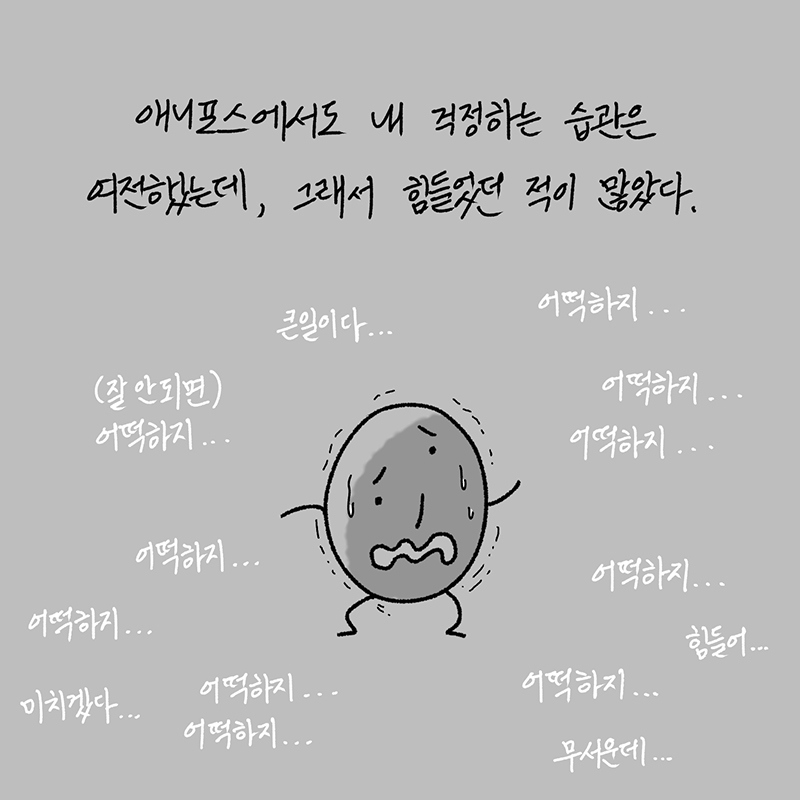 애니포스에서도 내 걱정하는 습관은
여전했는데, 그래서 힘들었던 적이 많았다.
어떡하지...
큰일이다...
(잘 안되면)
어떡하지...
어떡하지...
어떡하지...
어떡하지...
어떡하지...
어떡하지...
힘들어...
어떡하지...
어떡하지...
미치겠다...
어떡하지...
무서운데...